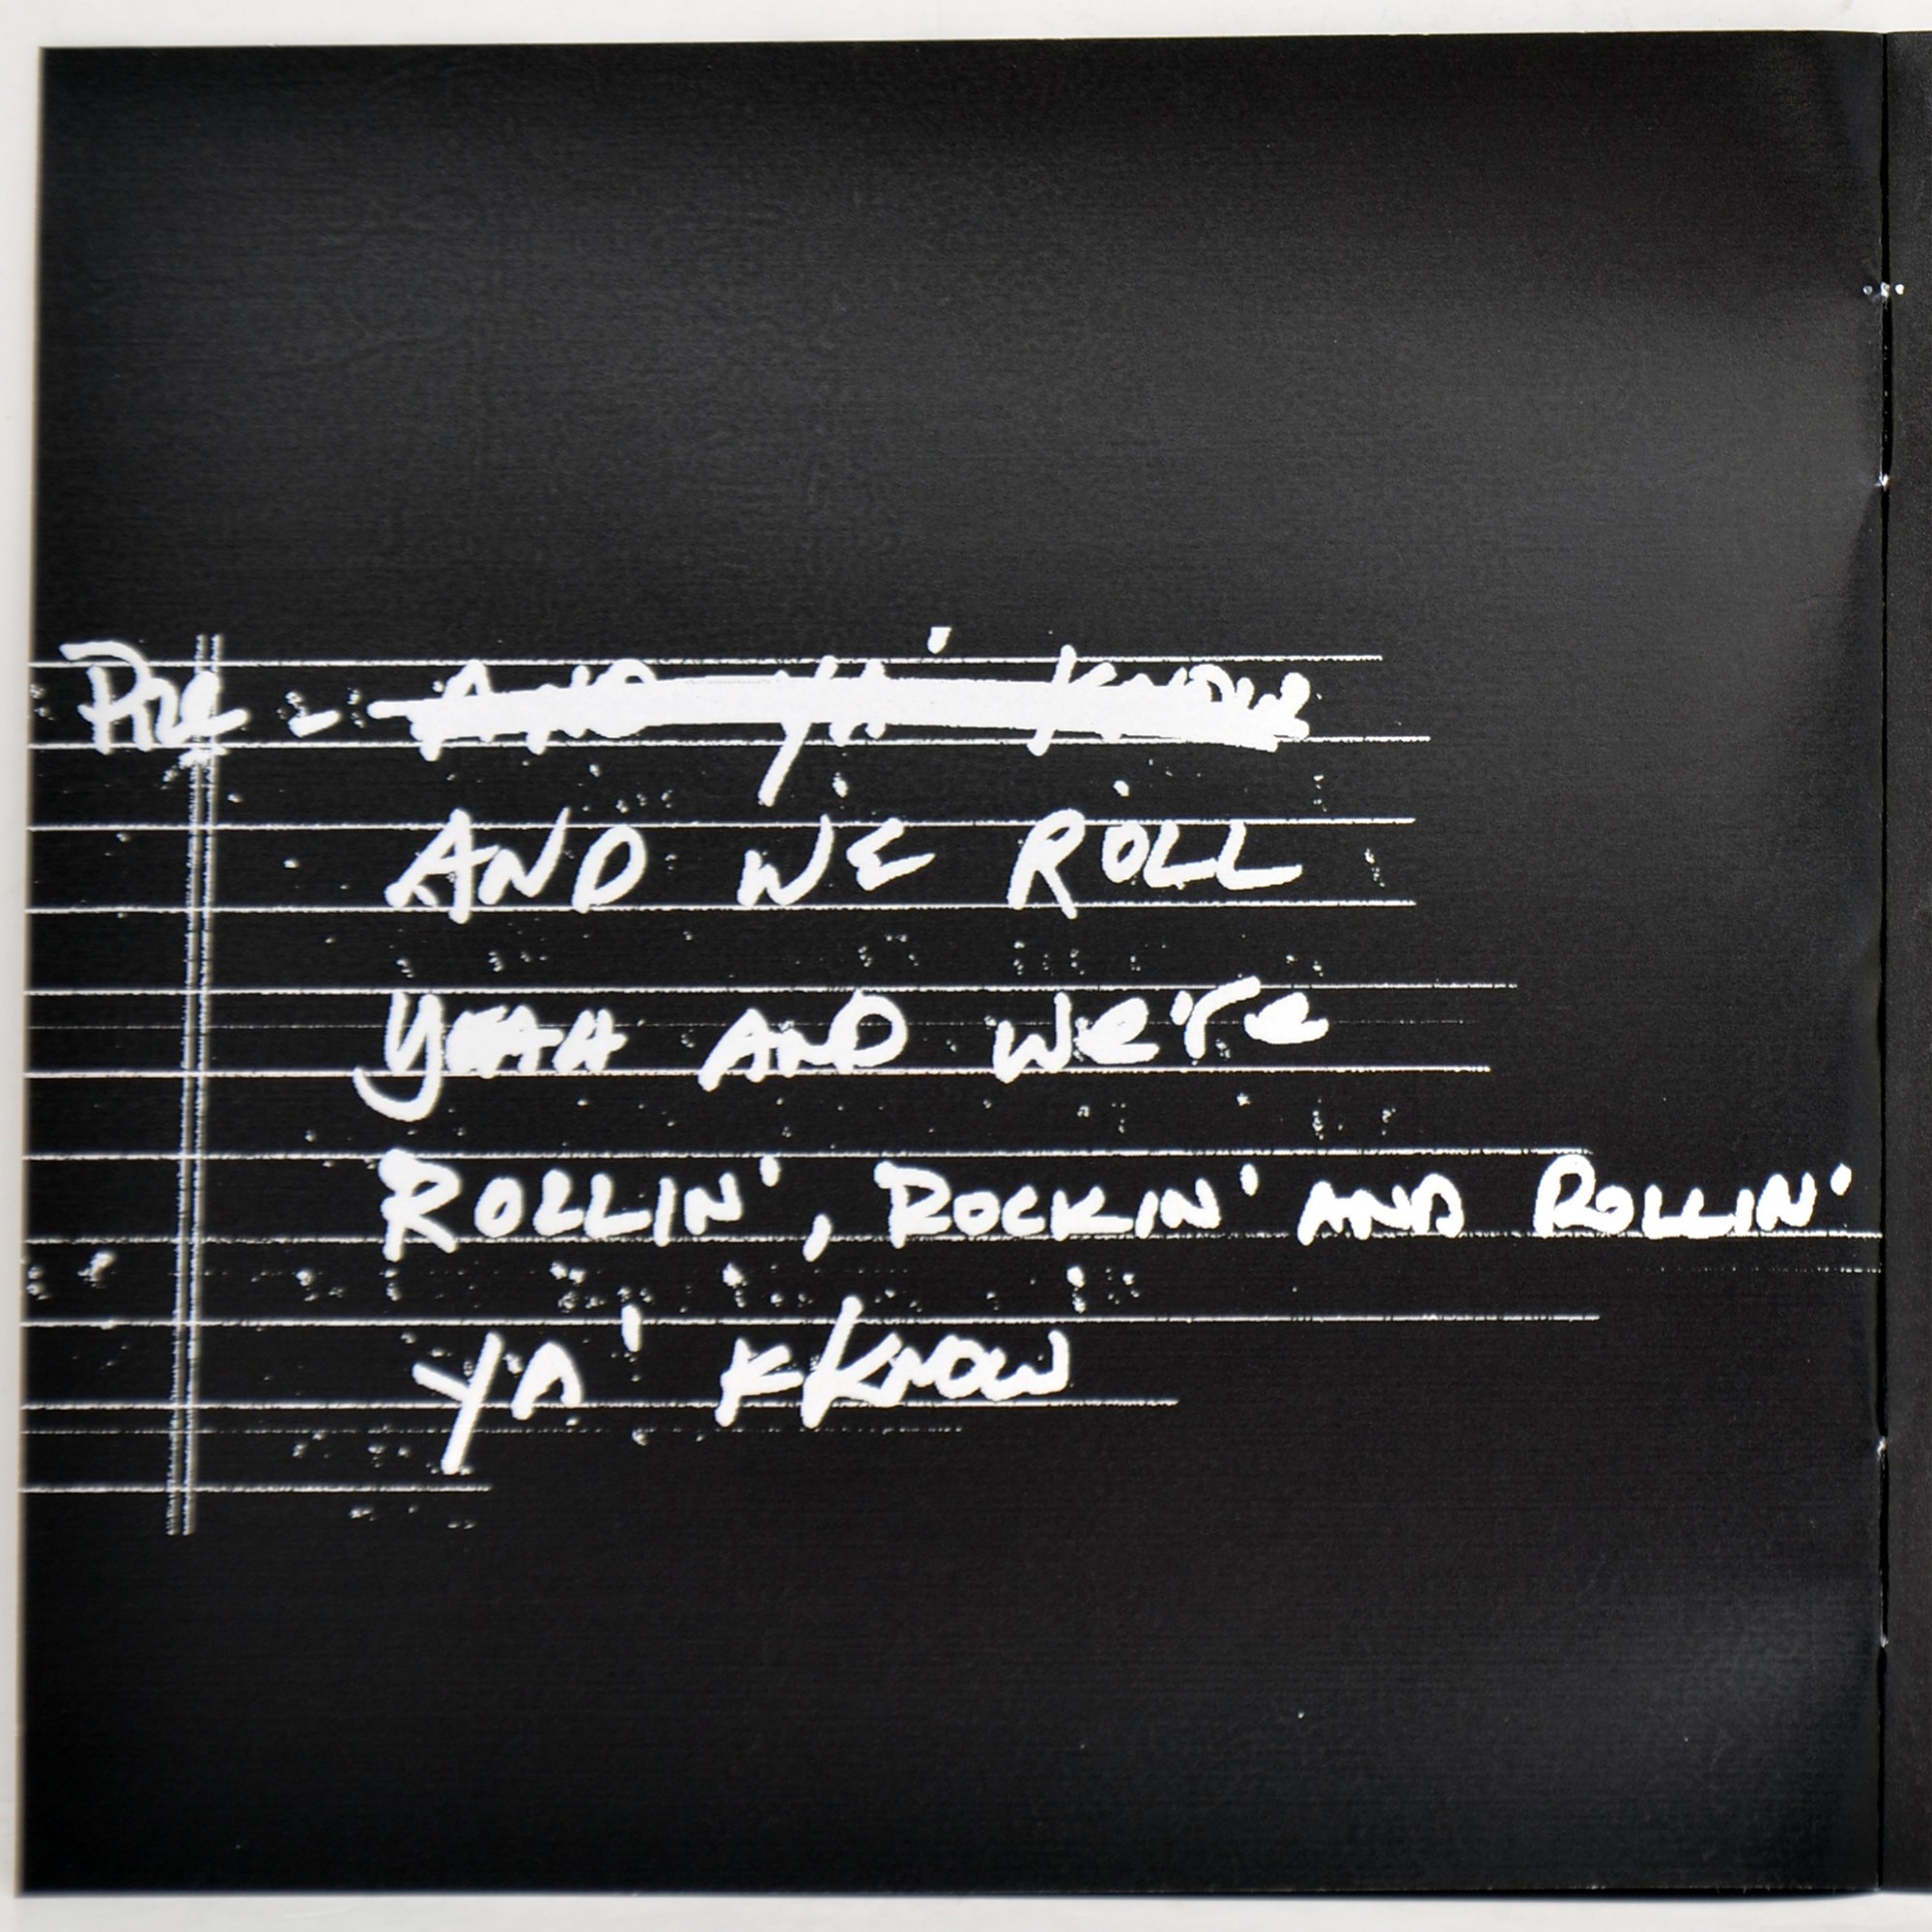 Pre - AND YA' KNOW
AND WE ROLL
YEAH AND We're
ROLLIN', ROCKIN' AND ROLLIN'
YA' K KNOW